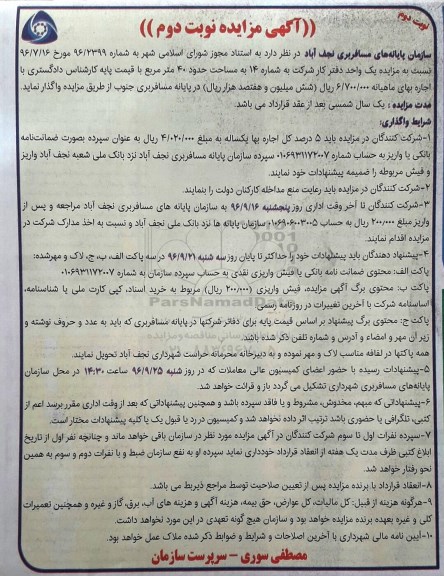 نوبت دوم
((آگهی مزایده نوبت دوم))
سازمان پایانه‌های مسافربری نجف آباد در نظر دارد به استناد مجوز شورای اسلامی شهر به شماره ۹۶/۲۳۹۹ مورخ ۹۶/۷/۱۶
نسبت به مزایده یک واحد دفتر کار شرکت به شماره ۱۴ به مساحت حدود ۴۰ متر مربع با قیمت پایه کارشناس دادگستری با
اجاره بهای ماهیانه ۶/۷۰۰/۰۰۰ ریال (شش میلیون و هفتصد هزار ریال) در پایانه مسافربری جنوب از طریق مزایده واگذار نماید.
مدت مزایده : یک سال شمسی بعد از عقد قرارداد می باشد.
شرایط واگذاری:
۱-شرکت کنندگان در مزایده باید ۵ درصد کل اجاره بها یکساله به مبلغ ۴/۰۲۰/۰۰۰ ریال به عنوان سپرده بصورت ضمانت‌نامه
بانکی یا واریز به حساب شماره ۰۱۰۶۹۳۱۱۷۲۰۰۷ سپرده سازمان پایانه مسافربری نجف آباد نزد بانک ملی شعبه نجف آباد واریز
و فیش مربوطه را ضمیمه پیشنهادات خود نمایند.
۲-شرکت کنندگان در مزایده باید رعایت منع مداخله کارکنان دولت را بنمایند.
۳-شرکت کنندگان تا آخر وقت اداری روز پنجشنبه ۹۶/۹/۱۶ به سازمان پایانه های مسافربری نجف آباد مراجعه و پس از
واریز مبلغ ۲۰۰/۰۰۰ ریال به حساب ۰۱۰۶۹۰۶۰۰۳۰۰۵ سازمان پایانه ها نزد بانک ملی نجف آباد و نسبت به اخذ مدارک شرکت در
مزایده اقدام نمایند.
۴-پیشنهاد دهندگان باید پیشنهادات خود را حداکثر تا پایان روز سه شنبه ۹۶/۹/۲۱ در سه پاکت الف، ب، ج، لاک و مهرشده:
پاکت الف: محتوی ضمانت نامه بانکی یا فیش واریزی نقدی به حساب سپرده سازمان به شماره ۰۱۰۶۹۳۱۱۷۲۰۰۷
پاکت ب: محتوی برگ آگهی مزایده، فیش واریزی (۲۰۰/۰۰۰ ریال) مربوط به خرید اسناد، کپی کارت ملی یا شناسنامه،
اساسنامه شرکت با آخرین تغییرات در روزنامه رسمی
پاکت ج: محتوی برگ پیشنهاد بر اساس قیمت پایه برای دفاتر شرکتها در پایانه مسافربری که باید به عدد و حروف نوشته و
زیر آن مهر و امضاء و آدرس و شماره تلفن ذکر شده باشد.
همه پاکتها در لفافه مناسب لاک و مهر نموده و به دبیرخانه محرمانه حراست شهرداری نجف آباد تحویل نمایند.
۵-پیشنهادات رسیده با حضور اعضای کمیسیون عالی معاملات که در روز شنبه ۹۶/۹/۲۵ ساعت ۱۴:۳۰ در محل سازمان
پایانه‌های مسافربری شهرداری تشکیل می گردد باز و قرائت خواهد شد.
۶-پیشنهاداتی که مبهم، مخدوش، مشروط و یا فاقد سپرده باشد و همچنین پیشنهاداتی که بعد از وقت اداری مقرر برسد اعم از
کتبی، تلگرافی یا حضوری باشد ترتیب اثر داده نخواهد شد و کمیسیون در رد یا قبول یک یا کلیه پیشنهادات مختار است.
۷-سپرده نفرات اول تا سوم شرکت کنندگان در آگهی مزایده مورد نظر در سازمان باقی خواهد ماند و چنانچه نفر اول از تاریخ
ابلاغ کتبی ظرف مدت یک هفته از انعقاد قرارداد خودداری نماید سپرده او به نفع سازمان ضبط و با نفرات دوم و سوم به همین
نحو رفتار خواهد شد.
۸-انعقاد قرارداد با برنده مزایده پس از تعیین صلاحیت توسط مراجع ذیربط می باشد.
۹-هرگونه هزینه از قبیل: کل مالیات، کل عوارض، حق بیمه، هزینه آگهی و هزینه های آب، برق، گاز و غیره و همچنین تعمیرات
کلی و غیره بعهده برنده مزایده خواهد بود و سازمان هیچ گونه تعهدی در این مورد نخواهد داشت.
۱۰-آیین نامه مالی شهرداری با آخرین اصلاحات و شرایط و ضوابط ذکر شده ملاک عمل خواهد بود.
مصطفی سوری - سرپرست سازمان